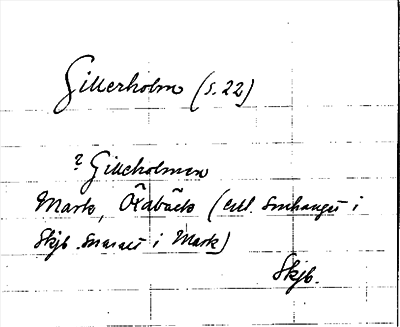 Gillerholm (s. 22)
? Gilleholmen
Mark, Öxabäck (enl. smhanget i
Skjb. snarast i Mark)
Skjb.